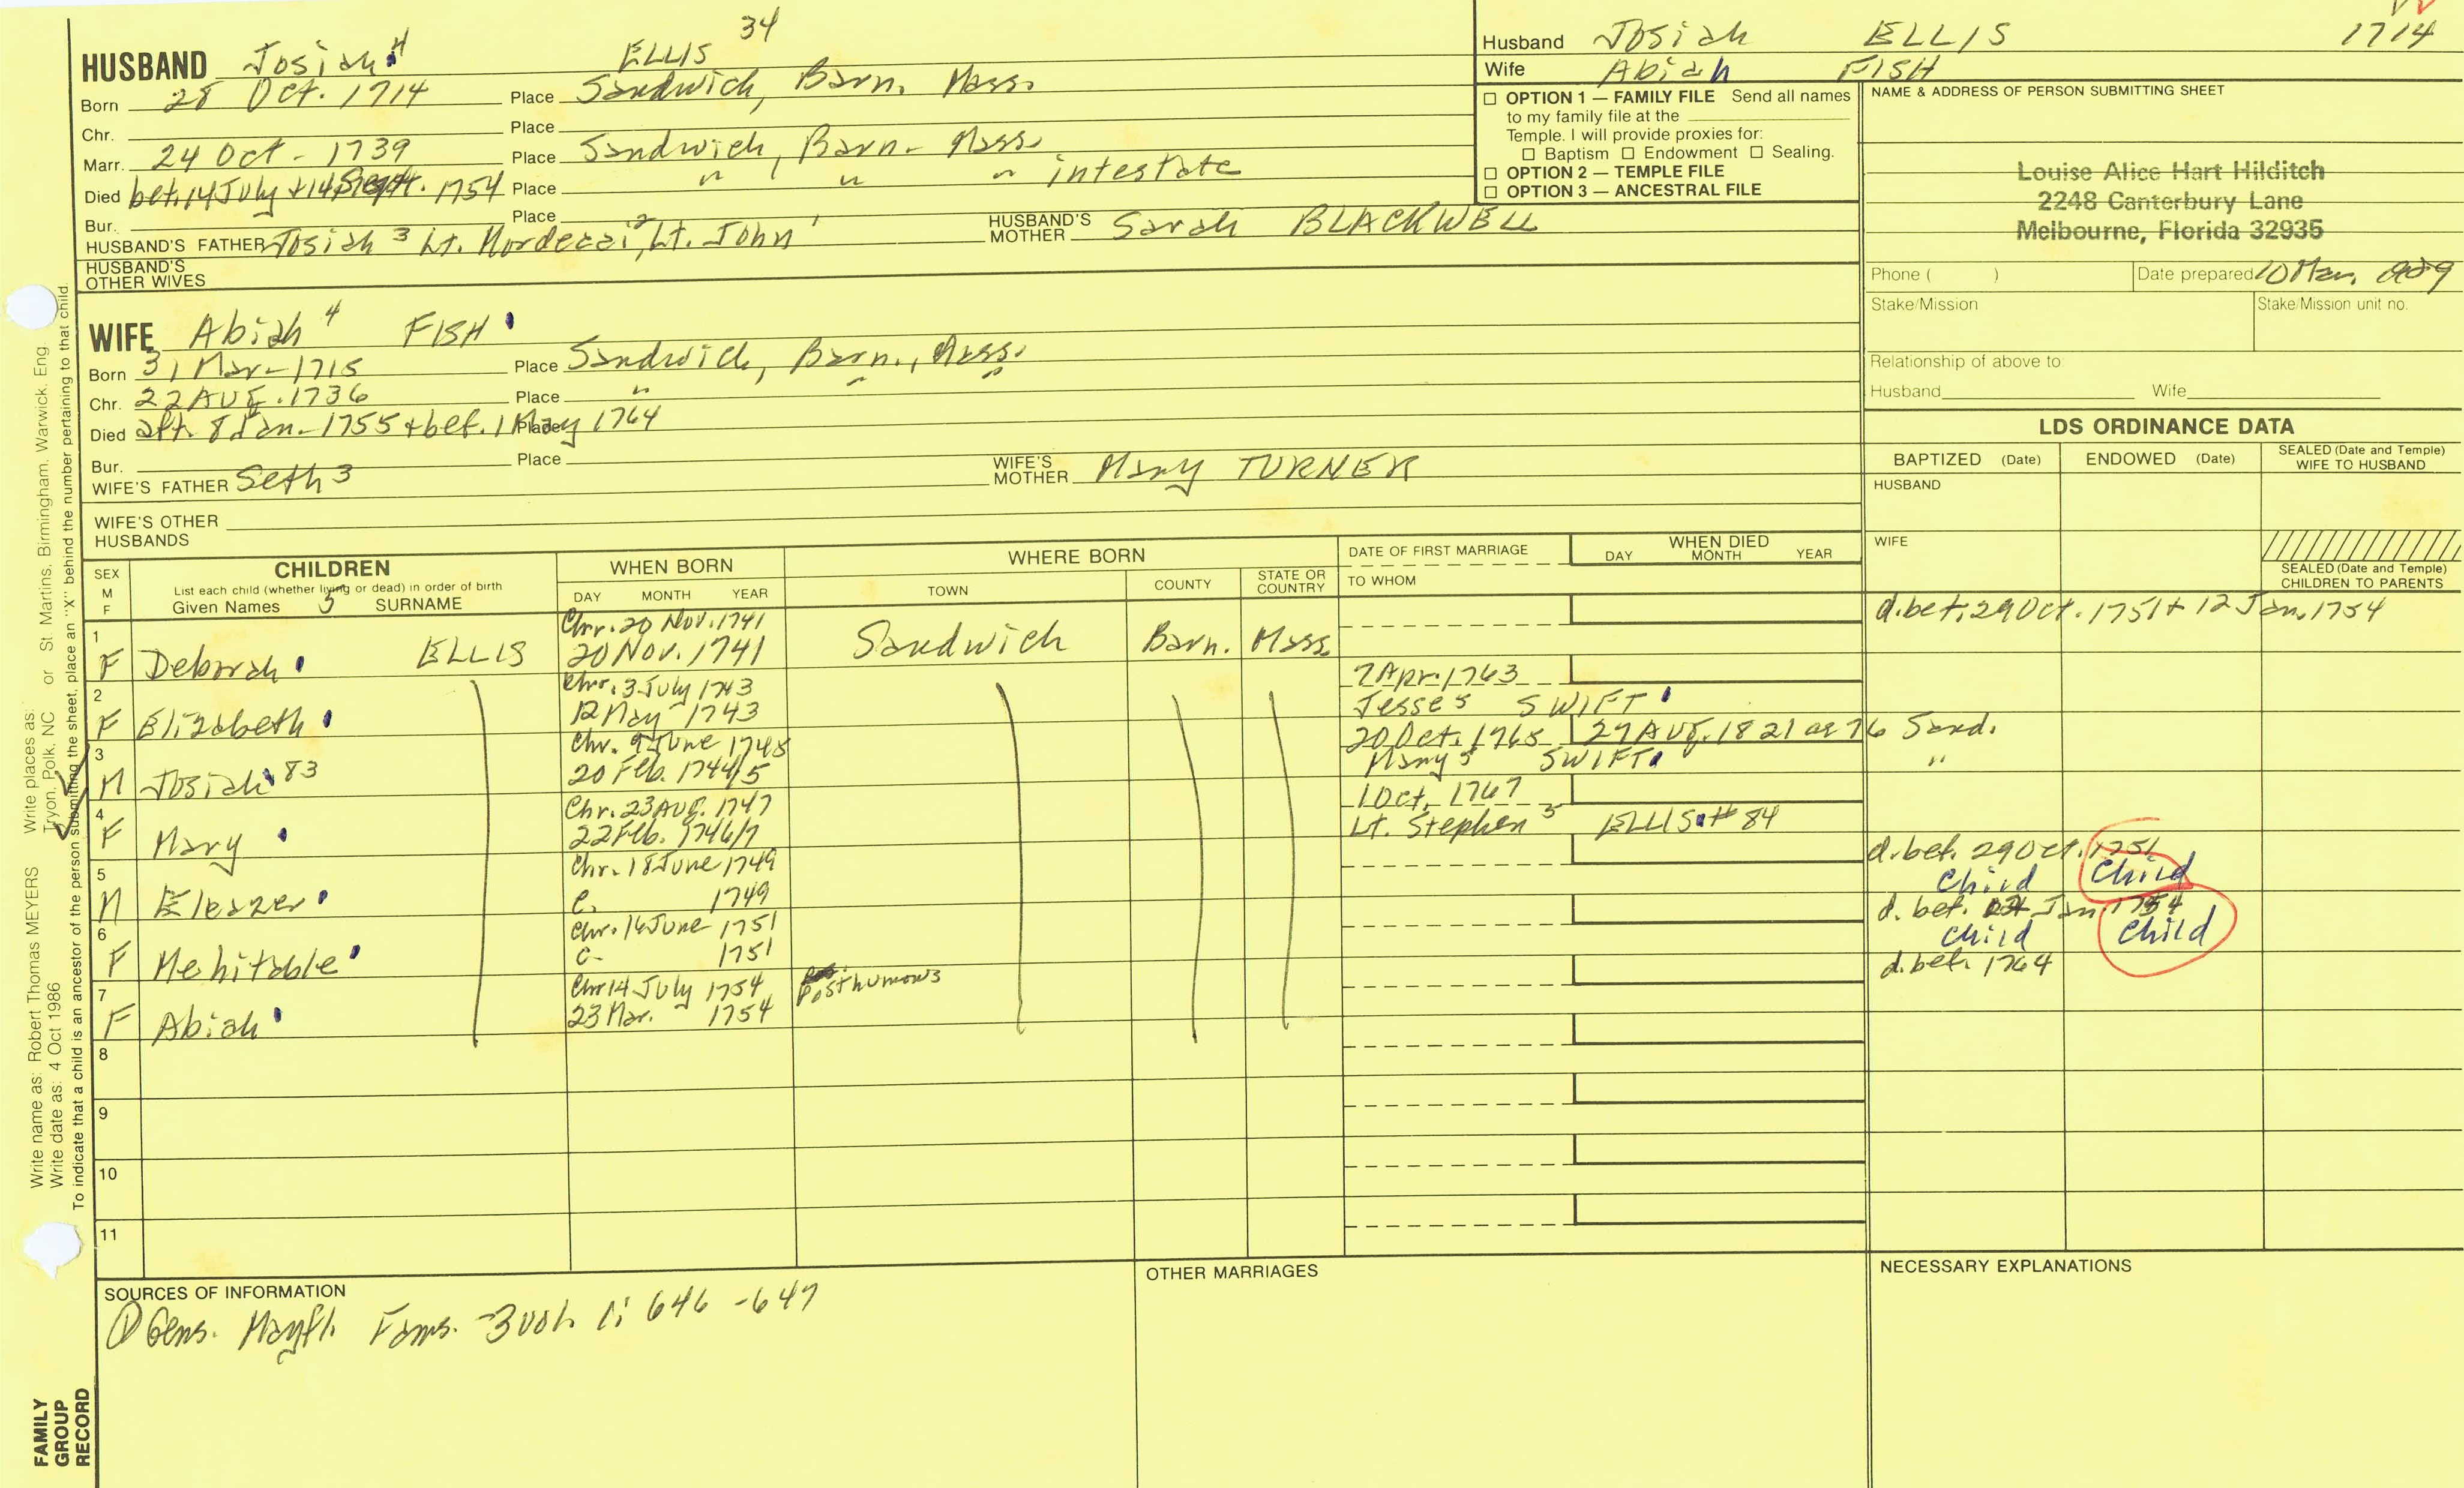 34
HUSBAND Josiah 4 ELLIS
Born 28 Oct. 1714 Place Sandwich, Barn. Mass.
Chr. Place
Marr. 24 Oct - 1739 Place Sandwich, Barn- Mass.
Died bet. 14 July + 14 Sept. 1754 Place " " " intestate
Bur. Place
HUSBAND'S FATHER Josiah 3 Lt. Mordecai 2, Lt. John 1 HUSBAND'S MOTHER Sarah BLACKWELL
HUSBAND'S OTHER WIVES
WIFE Abiah 4 FISH
Born 31 Mar - 1715 Place Sandwich, Barn., Mass.
Chr. 22 AUG. 1736 Place " " "
Died aft. 8 Jan - 1755 + bef. 1 May 1764 Place
Bur. Place
WIFE'S FATHER Seth 3 WIFE'S MOTHER Mary TURNER
WIFE'S OTHER HUSBANDS
Husband Josiah ELLIS 1714
Wife Abiah FISH
☐ OPTION 1 — FAMILY FILE Send all names
to my family file at the
Temple. I will provide proxies for:
☐ Baptism ☐ Endowment ☐ Sealing.
☐ OPTION 2 — TEMPLE FILE
☐ OPTION 3 — ANCESTRAL FILE
NAME & ADDRESS OF PERSON SUBMITTING SHEET
Louise Alice Hart Hilditch
2248 Canterbury Lane
Melbourne, Florida 32935
Phone ( ) Date prepared 10 Mar.
Stake/Mission Stake/Mission unit no.
Relationship of above to:
Husband Wife
LDS ORDINANCE DATA
BAPTIZED (Date) ENDOWED (Date) SEALED (Date and Temple) WIFE TO HUSBAND
HUSBAND
WIFE
SEALED (Date and Temple) CHILDREN TO PARENTS
SEX M F
CHILDREN
List each child (whether living or dead) in order of birth
Given Names 5 SURNAME
WHEN BORN
DAY MONTH YEAR
WHERE BORN
TOWN COUNTY STATE OR COUNTRY
DATE OF FIRST MARRIAGE
TO WHOM
WHEN DIED
DAY MONTH YEAR
1 Chr. 20 Nov. 1741 d. bet. 29 Oct. 1751 + 12 Jan. 1754
F Deborah ELLIS 20 Nov. 1741 Sandwich Barn. Mass.
2 Chr. 3 July 1743 7 Apr. 1763
F Elizabeth 12 May 1743 Jesse 5 SWIFT
3 Chr. 9 June 1745 20 Oct. 1765 27 AUG. 1821 ae 76 Sand.
M Josiah 83 20 Feb. 1744/5 Mary 5 SWIFT "
4 Chr. 23 AUG. 1747 1 Oct. 1767
F Mary 22 Feb. 1746/7 Lt. Stephen 5 ELLIS # 84
5 Chr. 18 June 1749 d. bef. 29 Oct. 1751
M Eleazer c. 1749 Child Child
6 Chr. 16 June 1751 d. bef. Jan 1754
F Mehitable c - 1751 Child Child
7 Chr 14 July 1754 Posthumous d. bef. 1764
F Abiah 23 Mar. 1754
8
9
10
11
SOURCES OF INFORMATION
① Gens. Mayfl. Fams. - 1: 646 - 647
OTHER MARRIAGES
NECESSARY EXPLANATIONS
Write name as: Robert Thomas MEYERS Write places as: Tryon, Polk, NC or St Martins, Birmingham, Warwick, Eng.
Write date as: 4 Oct 1986
To indicate that a child is an ancestor of the person submitting the sheet, place an "X" behind the number pertaining to that child.
FAMILY
GROUP
RECORD